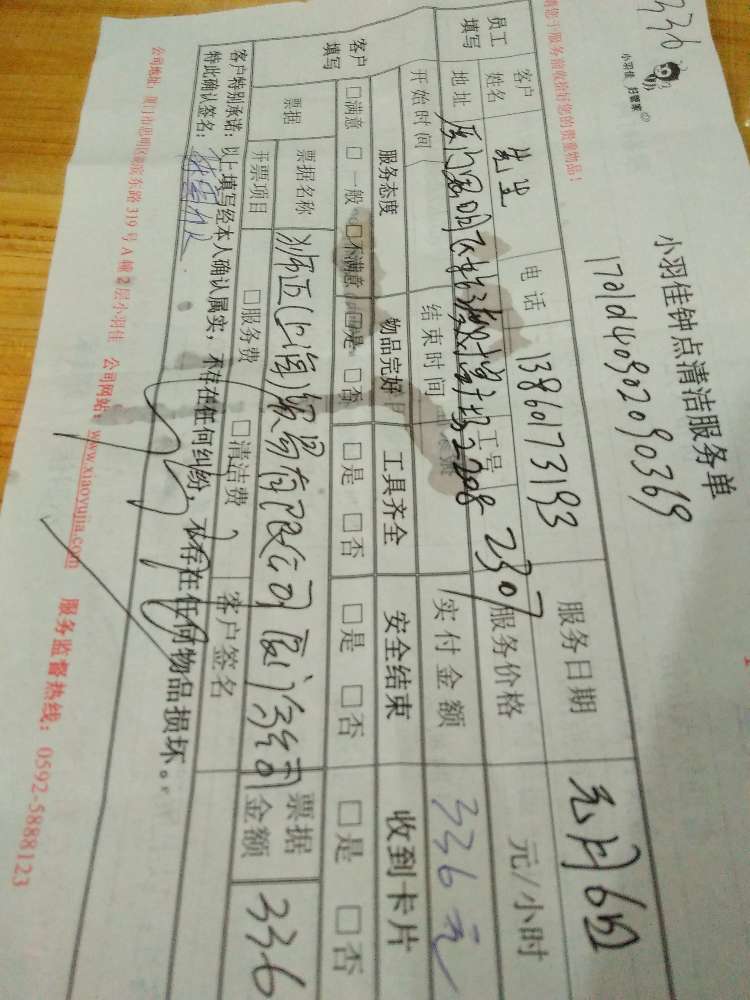 336
小羽佳 好管家
小羽佳钟点清洁服务单
请您于服务前收捡好您的贵重物品!
员工填写 客户姓名 先生 电话 13860173193 服务日期 6日
地址 2208 工号 2307 服务价格 元/小时
开始时间 结束时间 实付金额 336元
客户填写 服务态度 物品完好 工具齐全 安全结束 收到卡片
□满意 □一般 □不满意 □是 □否 □是 □否 □是 □否 □是 □否
票据 票据名称 (上海)贸易有限公司厦门分公司 票据金额 336
开票项目 □服务费 □清洁费 客户签名
客户特别承诺:以上填写经本人确认属实,不存在任何纠纷,不存在任何物品损坏。
特此确认签名:
公司地址:厦门市思明区湖滨东路319号A幢2层小羽佳 公司网站:www.xiaoyujia.com 服务监督热线:0592-5888123